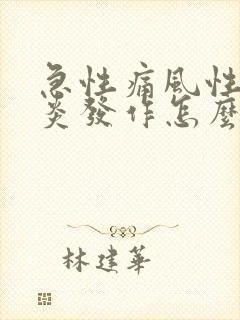 急性痛風性
炎發作怎麼
林建華